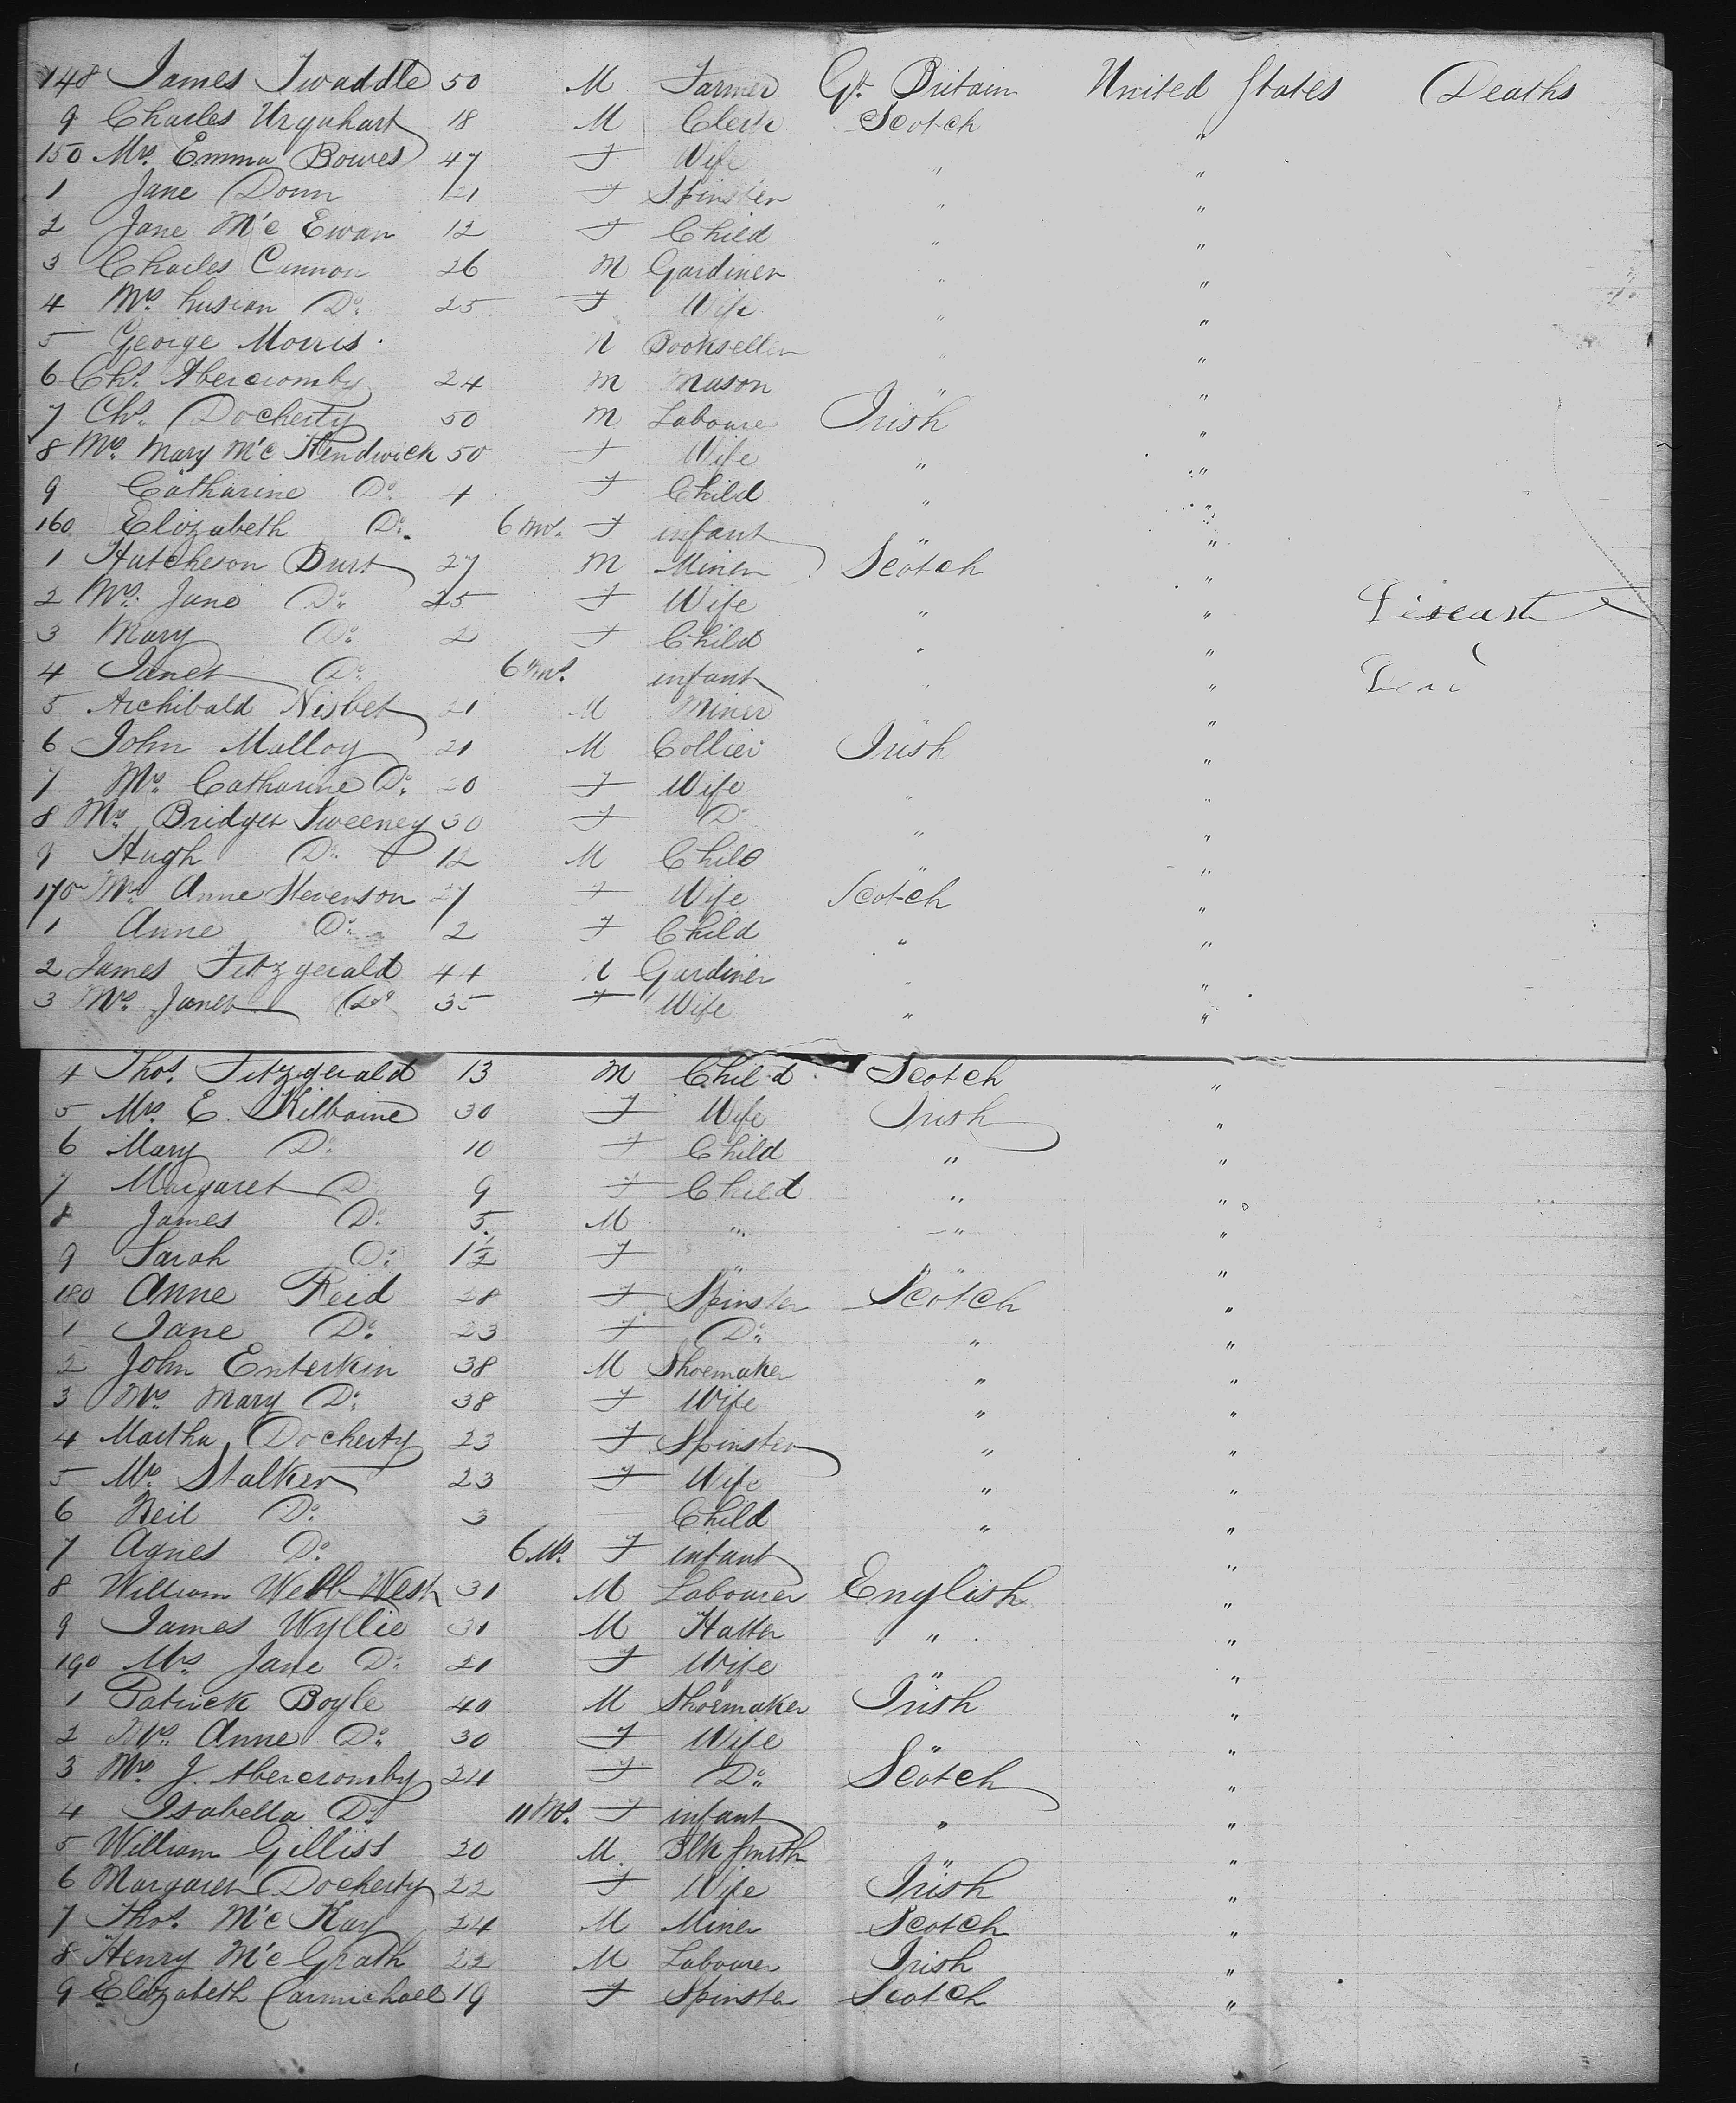 148 James Twaddle 50 M Farmer Gt. Britain United States Deaths
9 Charles Urquhart 18 M Clerk Scotch "
150 Mrs. Emma Bowes 47 F Wife " "
1 Jane Donn 21 F Spinster " "
2 Jane Mc Ewan 12 F Child " "
3 Charles Cannon 26 M Gardiner " "
4 Mrs. Do. 25 F Wife " "
5 George Morris. M Bookseller " "
6 Chs. Abercromby 24 M Mason " "
7 Chs. Docherty 50 M Laboure Irish "
8 Mrs. Mary Mc Kendwick 50 F Wife " "
9 Catharine Do. 4 F Child " "
160 Elizabeth Do. 6 Mos. F infant " "
1 Hutcheson Burt 27 M Miner Scotch "
2 Mrs. Jane Do. 25 F Wife " "
3 Mary Do. 2 F Child " "
4 Janet Do. 6 Ms. infant " "
5 Archibald Nisbet 21 M Miner " "
6 John Malloy 21 M Collier Irish "
7 Mrs. Catharine Do. 20 F Wife " "
8 Mrs. Bridget Sweeney 30 F Do. " "
9 Hugh Do. 12 M Child " "
170 Mrs. Anne Stevenson 27 F Wife Scotch "
1 Anne Do. 2 F Child " "
2 James Fitzgerald 44 M Gardiner " "
3 Mrs. Janet Do. 35 F Wife " "
4 Thos. Fitzgerald 13 M Child Scotch "
5 Mrs. E. Kilbaine 30 F Wife Irish "
6 Mary Do. 10 F Child " "
7 Margaret Do. 9 F Child " "
8 James Do. 5. M " " "
9 Sarah Do. 1½ F " " "
180 Anne Reid 28 F Spinster Scotch "
1 Jane Do. 23 F Do. " "
2 John Enterkin 38 M Shoemaker " "
3 Mrs. Mary Do. 38 F Wife " "
4 Martha Docherty 23 F Spinster " "
5 Mrs. Stalker 23 F Wife " "
6 Neil Do. 3 Child " "
7 Agnes Do. 6 Ms. F infant " "
8 William Webb West 31 M Labourer English "
9 James Wyllie 31 M Hatter " "
190 Mrs. Jane Do. 21 F Wife " "
1 Patrick Boyle 40 M Shoemaker Irish "
2 Mrs. Anne Do. 30 F Wife " "
3 Mrs. J. Abercromby 24 F Do. Scotch "
4 Isabella Do. 11 Ms. F infant " "
5 William Gilliss 20 M. Blk Smith " "
6 Margaret Docherty 22 F Wife Irish "
7 Thos. Mc Kay 24 M Miner Scotch "
8 Henry Mc Grath 22 M Labourer Irish "
9 Elizabeth Carmichael 19 F Spinster Scotch "